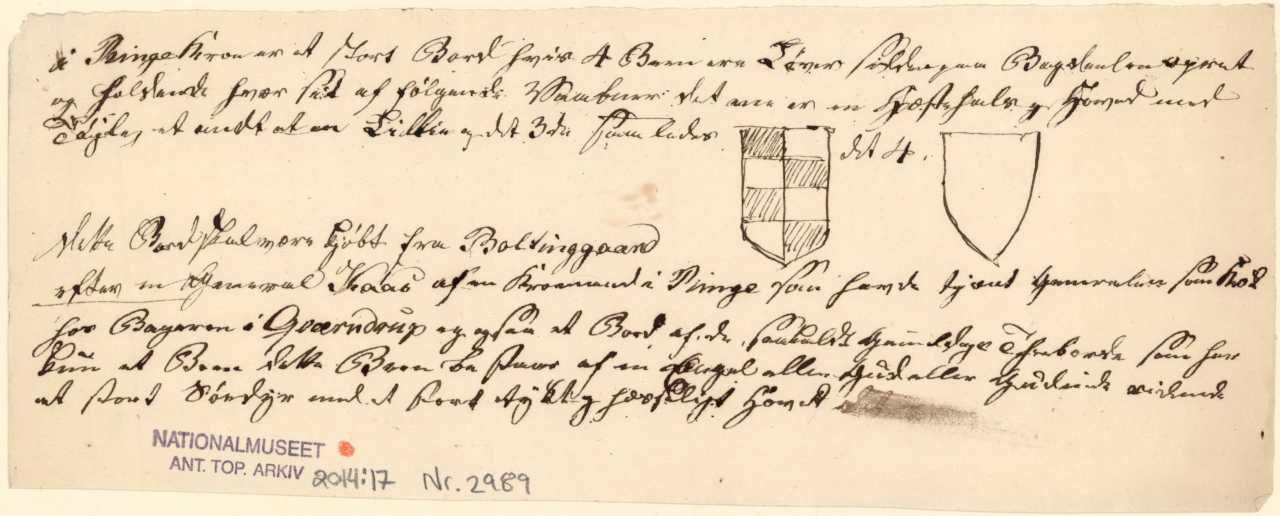 i Ringe Kroe er et stort Bord hvis 4 Been ere Løver siddende paa Bagdeelen opret
og holdende hver sit af følgende Vaabner det ene er en Hæstehals og Hoved med
Tøyle, et andt at en Lillie og det 3die saaledes det 4.
dette Bord skal være kjøbt fra Boltinggaard
efter en General Kaas af en Kroemand i Ringe som havde tjent Generalen som Kok
hos Bageren i Qværndrup er ogsaa et Bord af de saakaldte Theeborde som har
kun et Been dette Been bestaar af en Engel eller Gud eller Gudinde ridende
et stort Sødyr med et stort tykt og hæsligt Hovet
NATIONALMUSEET
ANT. TOP. ARKIV 2014:17 Nr. 2989